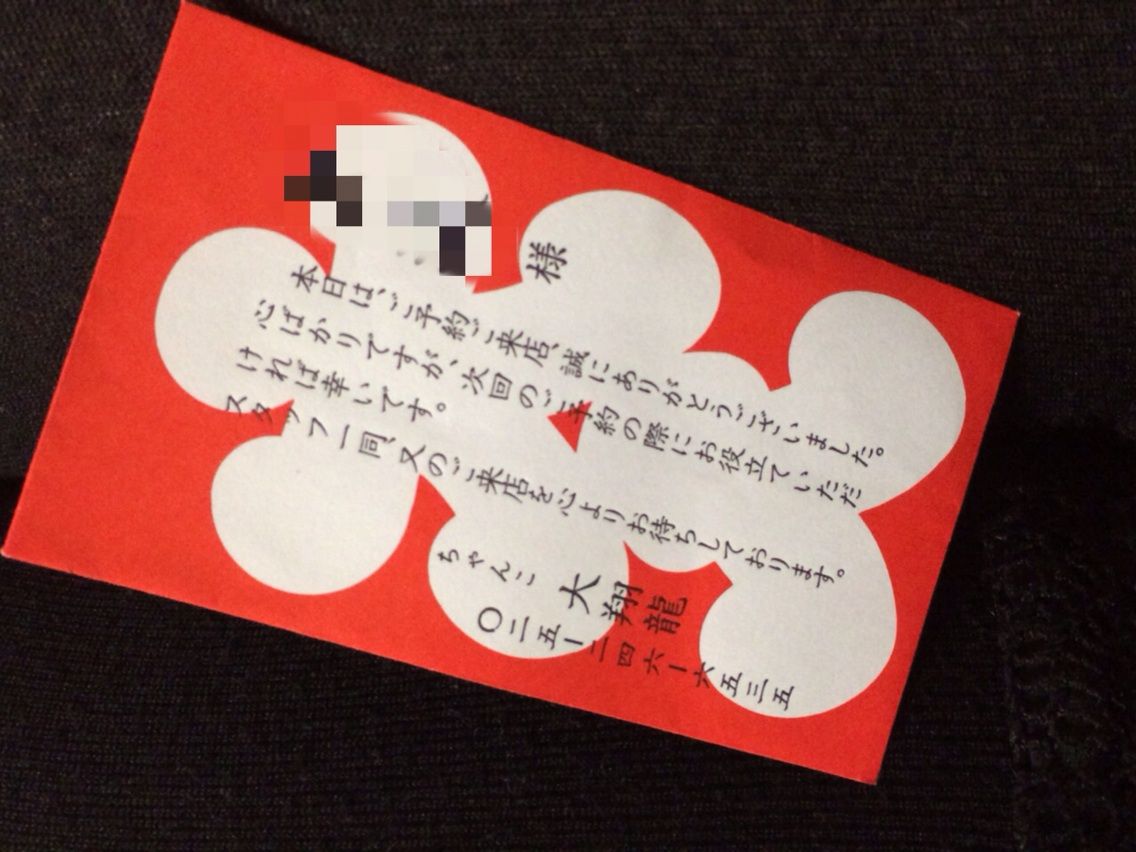 様
本日は、ご予約ご来店、誠にありがとうございました。
心ばかりですが、次回のご予約の際にお役立ていただ
ければ幸いです。
スタッフ一同、又のご来店を心よりお待ちしております。
ちゃんこ 大翔龍
〇二五ー二四六ー六五三五